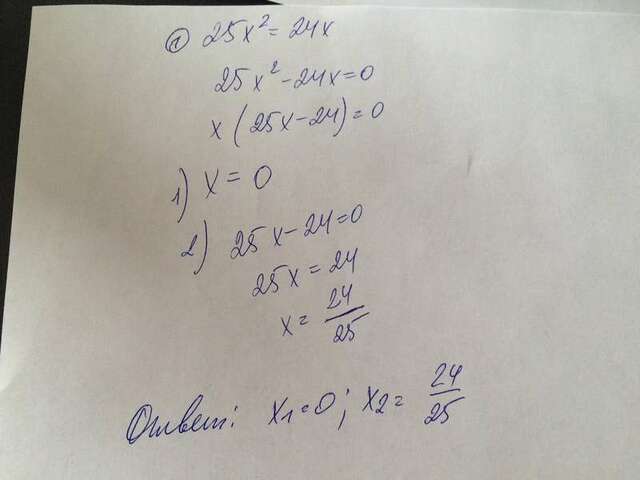 ① 25x² = 24x
25x² - 24x = 0
x (25x - 24) = 0
1) x = 0
2) 25x - 24 = 0
25x = 24
x = 24/25
Ответ: x₁ = 0; x₂ = 24/25